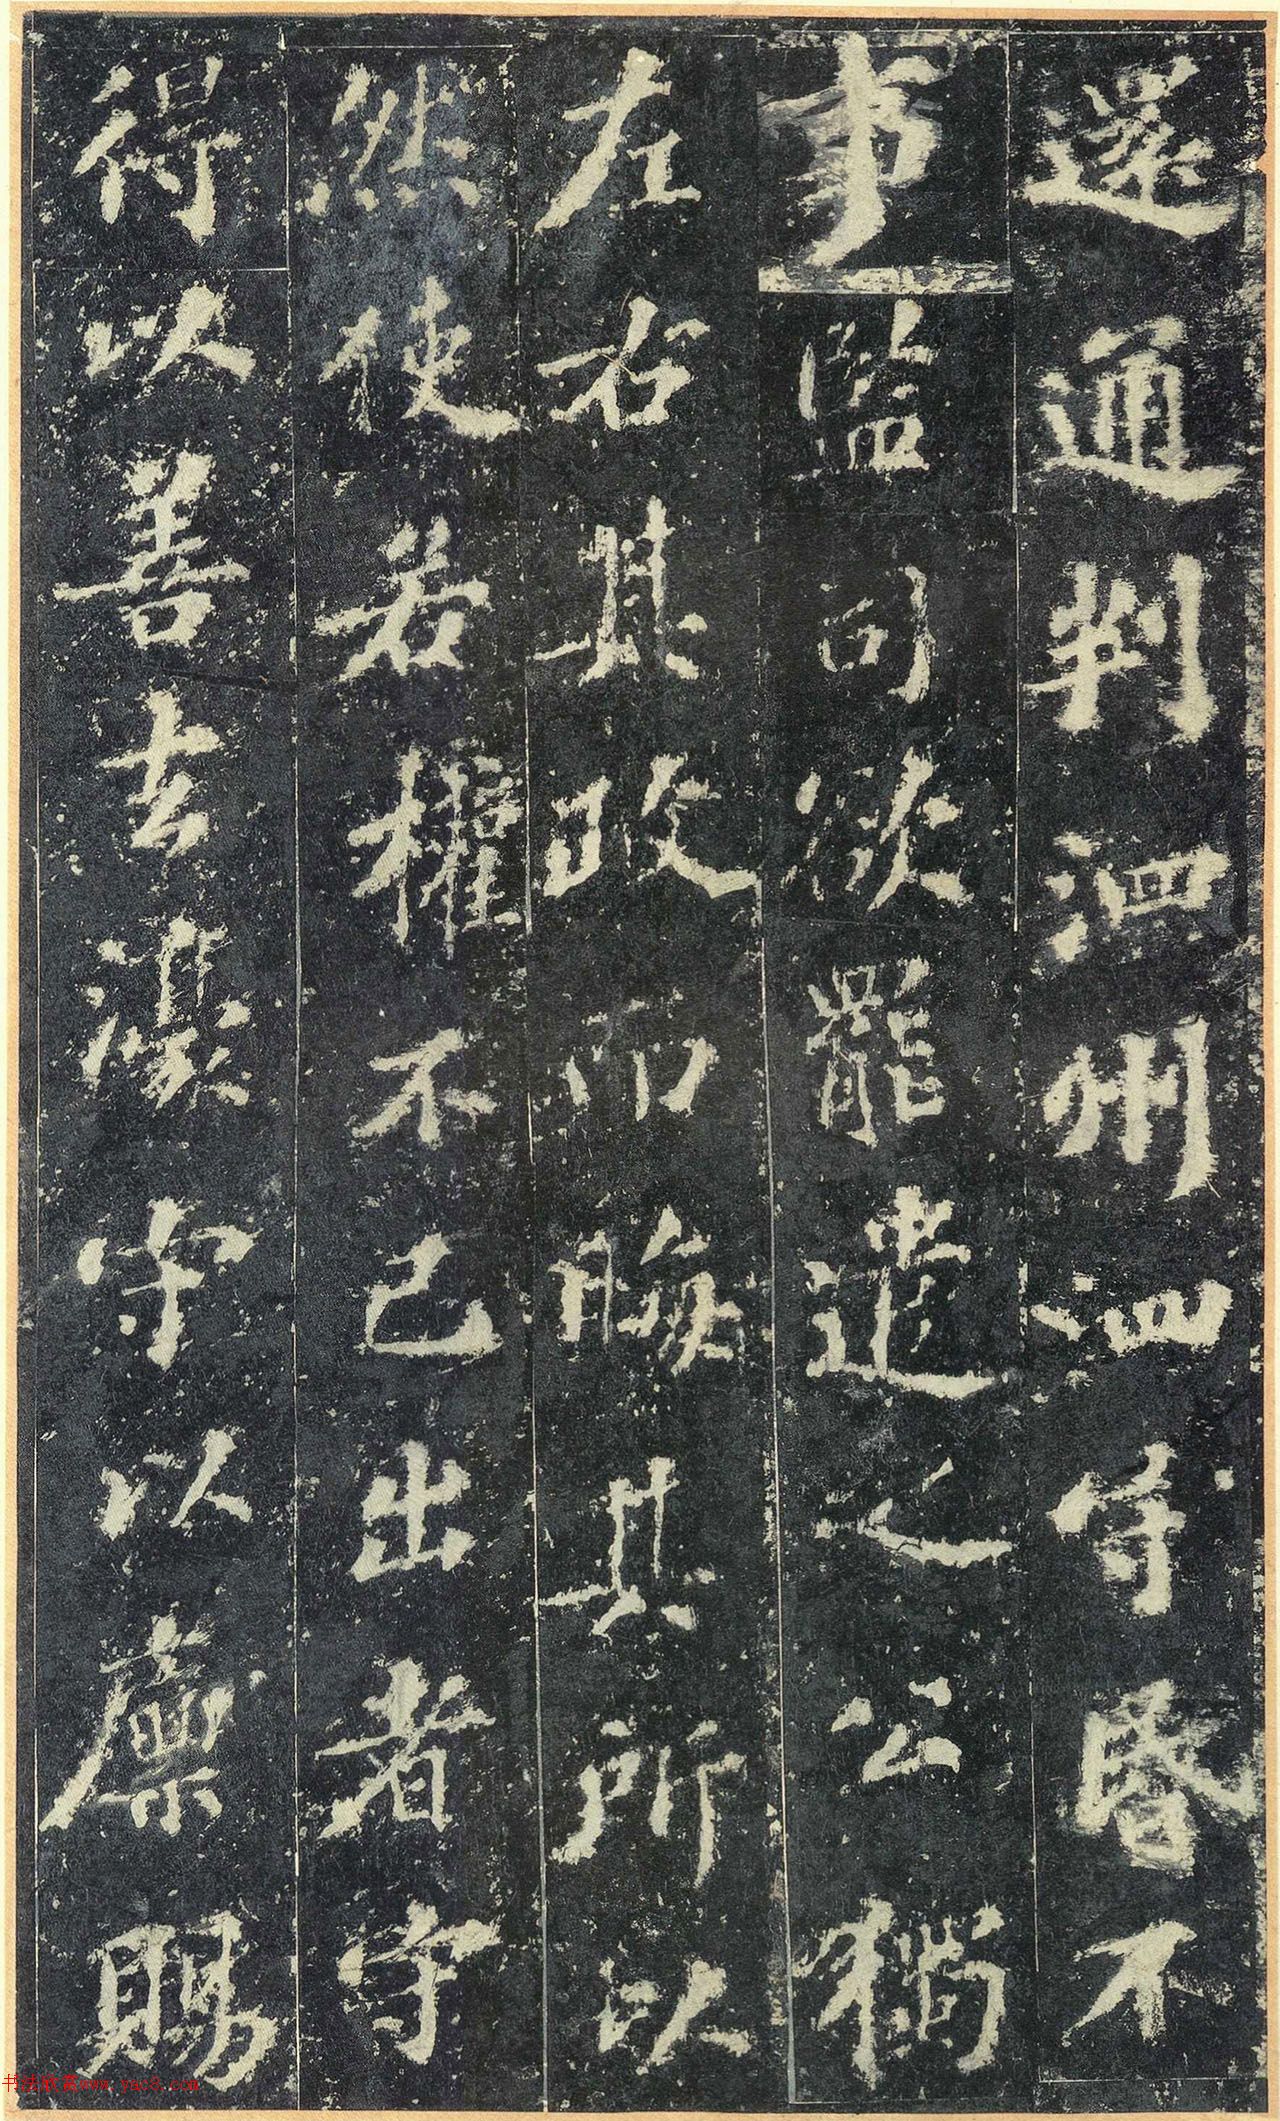 還通判泗州泗守昏不
事監司欲罷遣之公獨
左右其政而晦其所以
然使若權不己出者守
得以善去濠守以廪賜
书法欣赏www.yac8.com